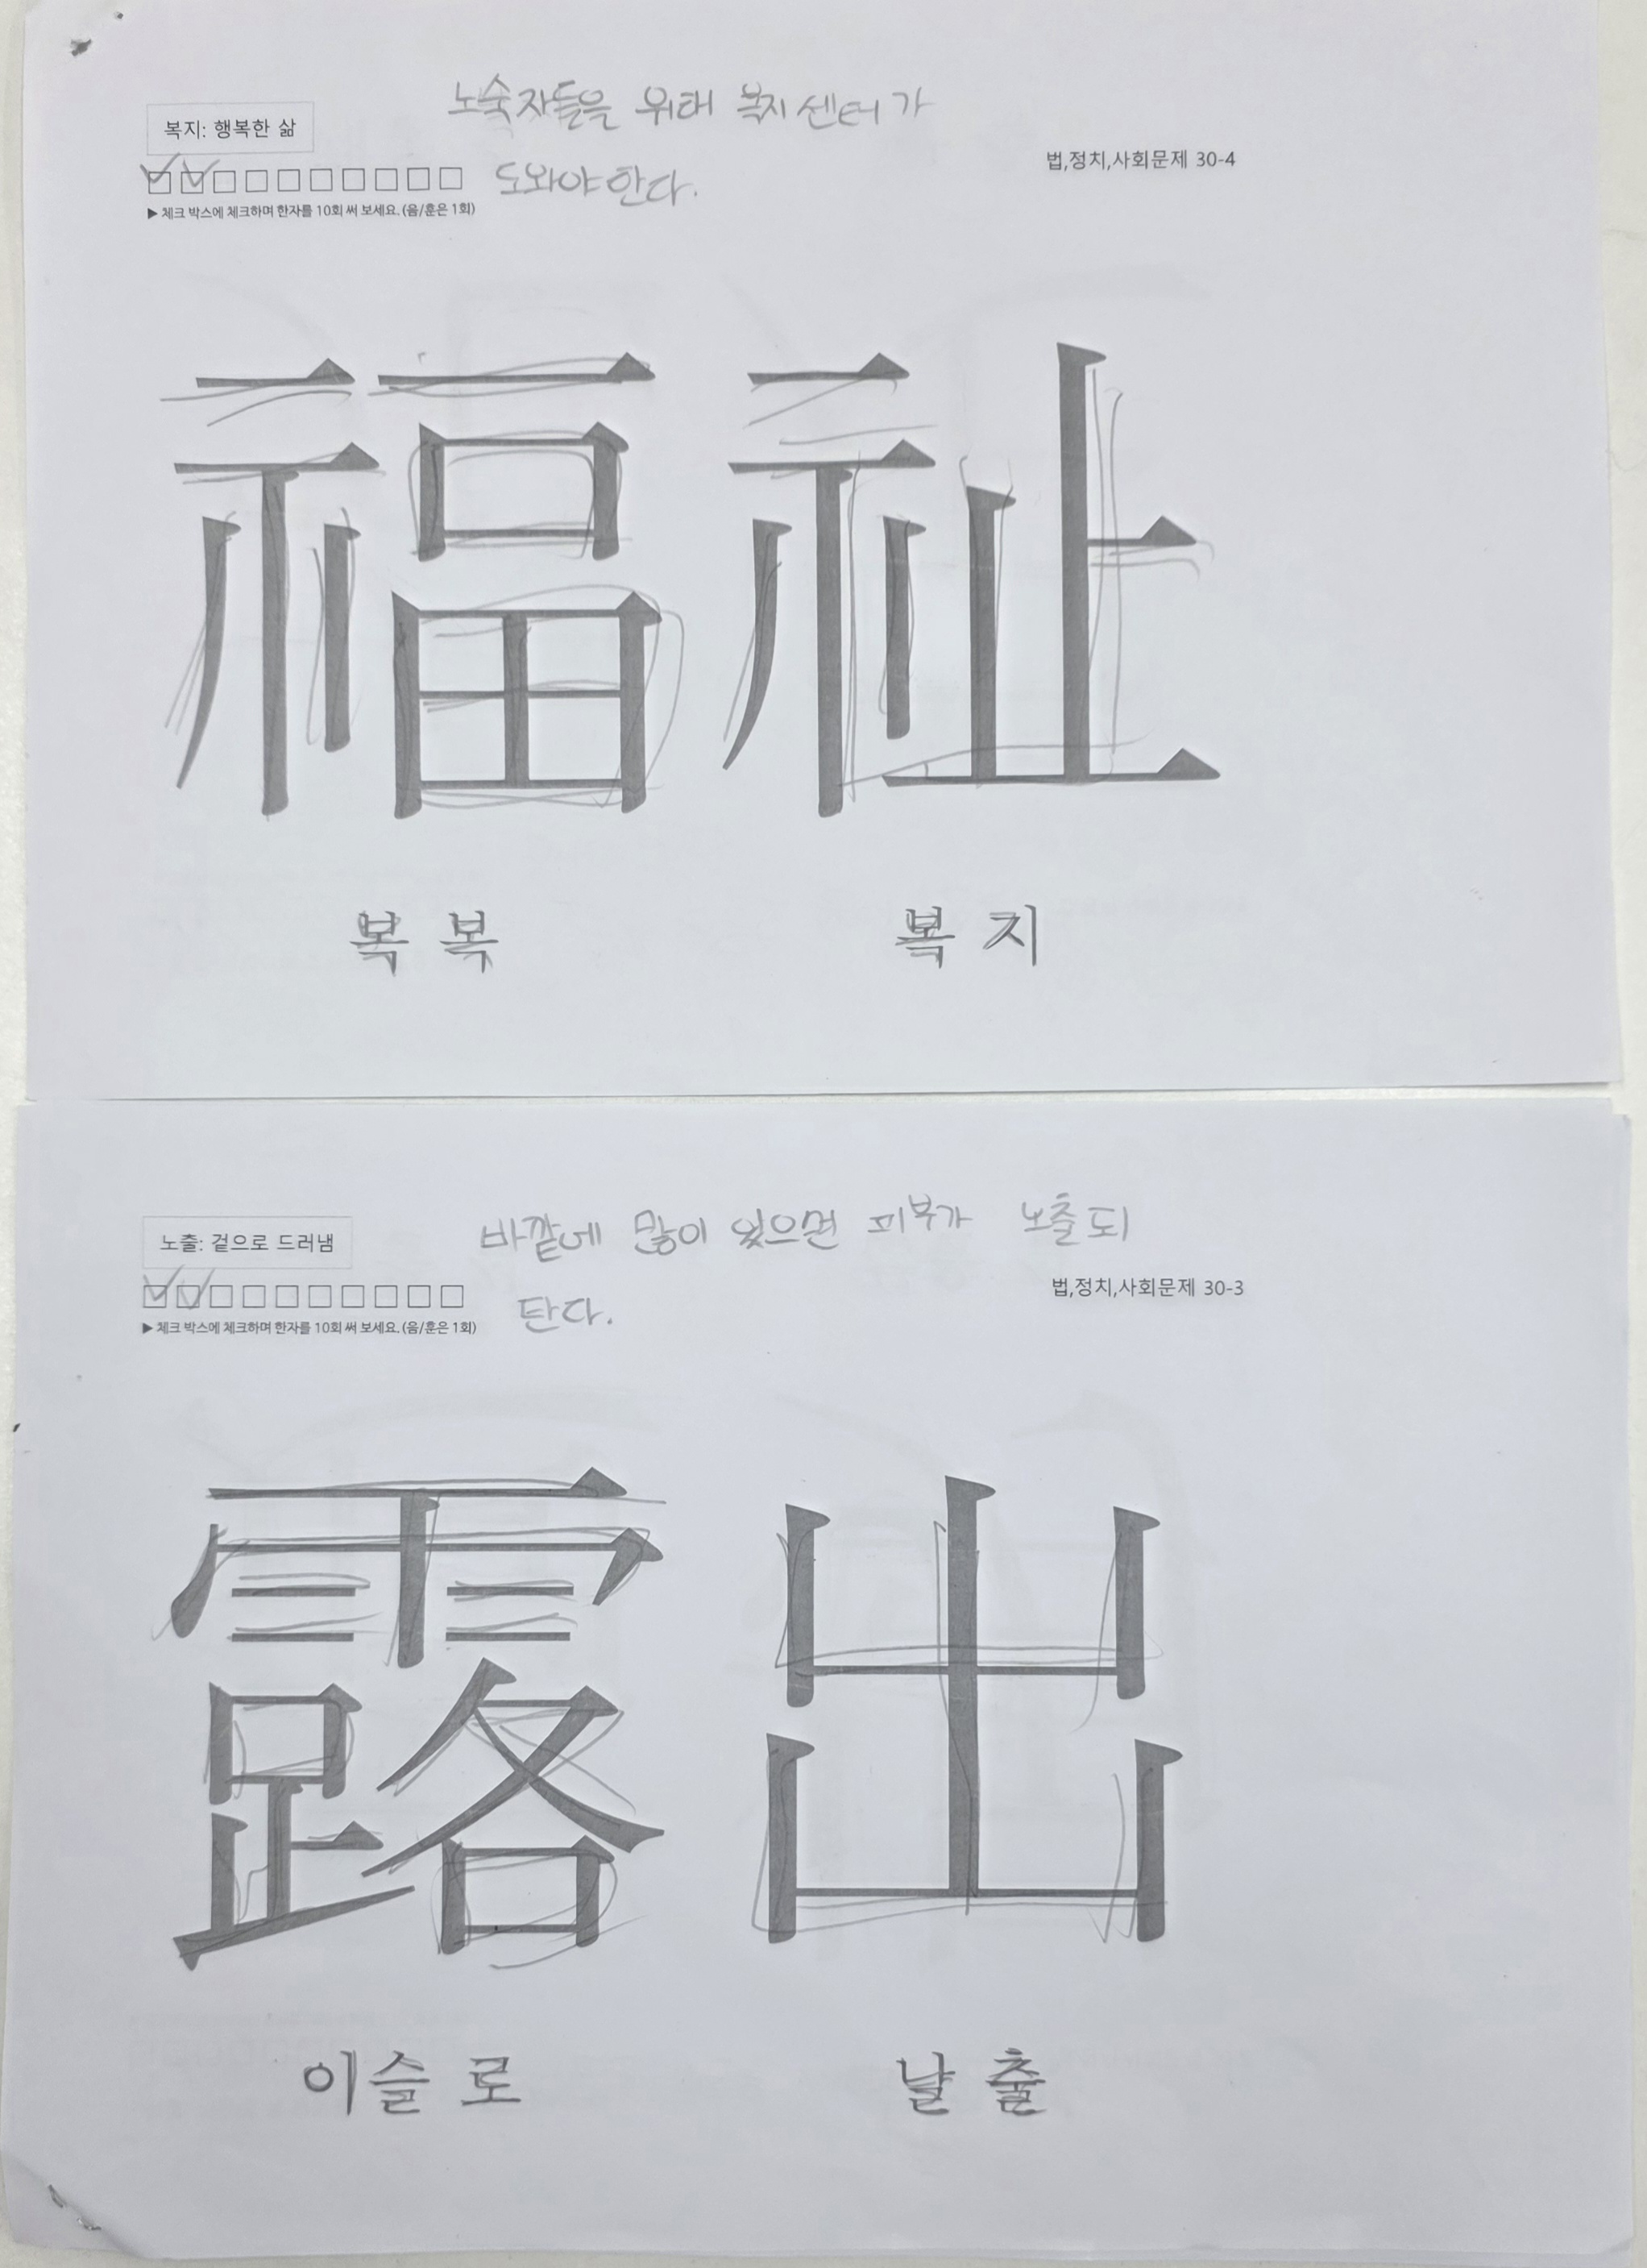 노숙자들을 위해 복지 센터가
복지: 행복한 삶
법,정치,사회문제 30-4
도와야 한다.
▶ 체크 박스에 체크하며 한자를 10회 써 보세요. (음/훈은 1회)
福祉
복 복 복 지
바깥에 많이 있으면 피부가 노출되
노출: 겉으로 드러냄
법,정치,사회문제 30-3
탄다.
▶ 체크 박스에 체크하며 한자를 10회 써 보세요. (음/훈은 1회)
露出
이슬 로 날 출